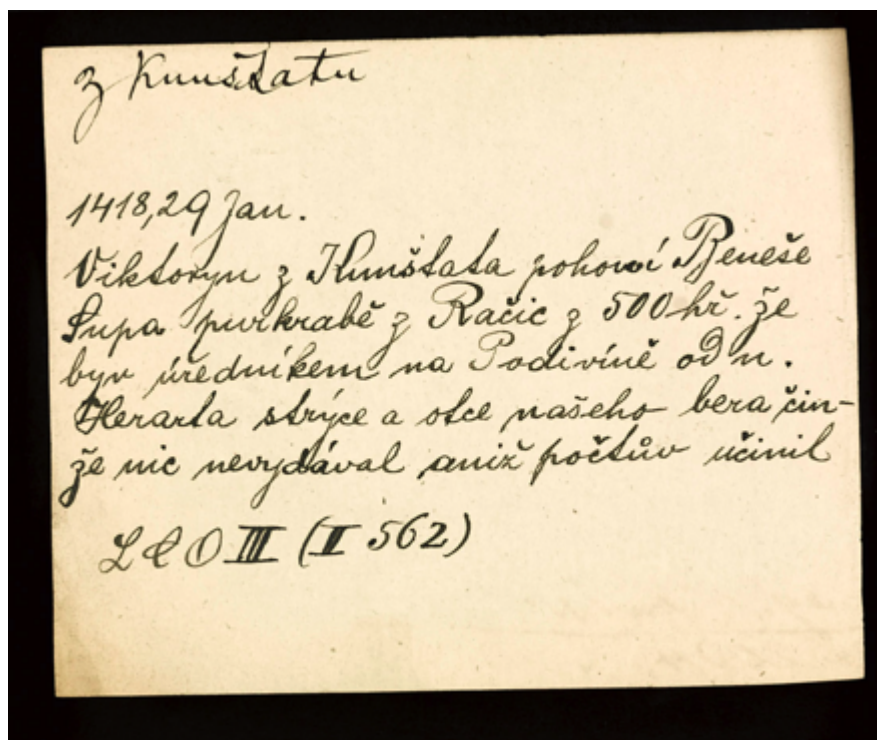 z Kunštatu
1418,29 Jan.
Viktoryn z Kunštata pohoní Beneše
Supa purkrabě z Račic z 500 hř. že
byv úředníkem na Podivíně od n.
Herarta strýce a otce našeho bera čin-
že nic nevydával aniž počtův učinil
L C O III (II 562)